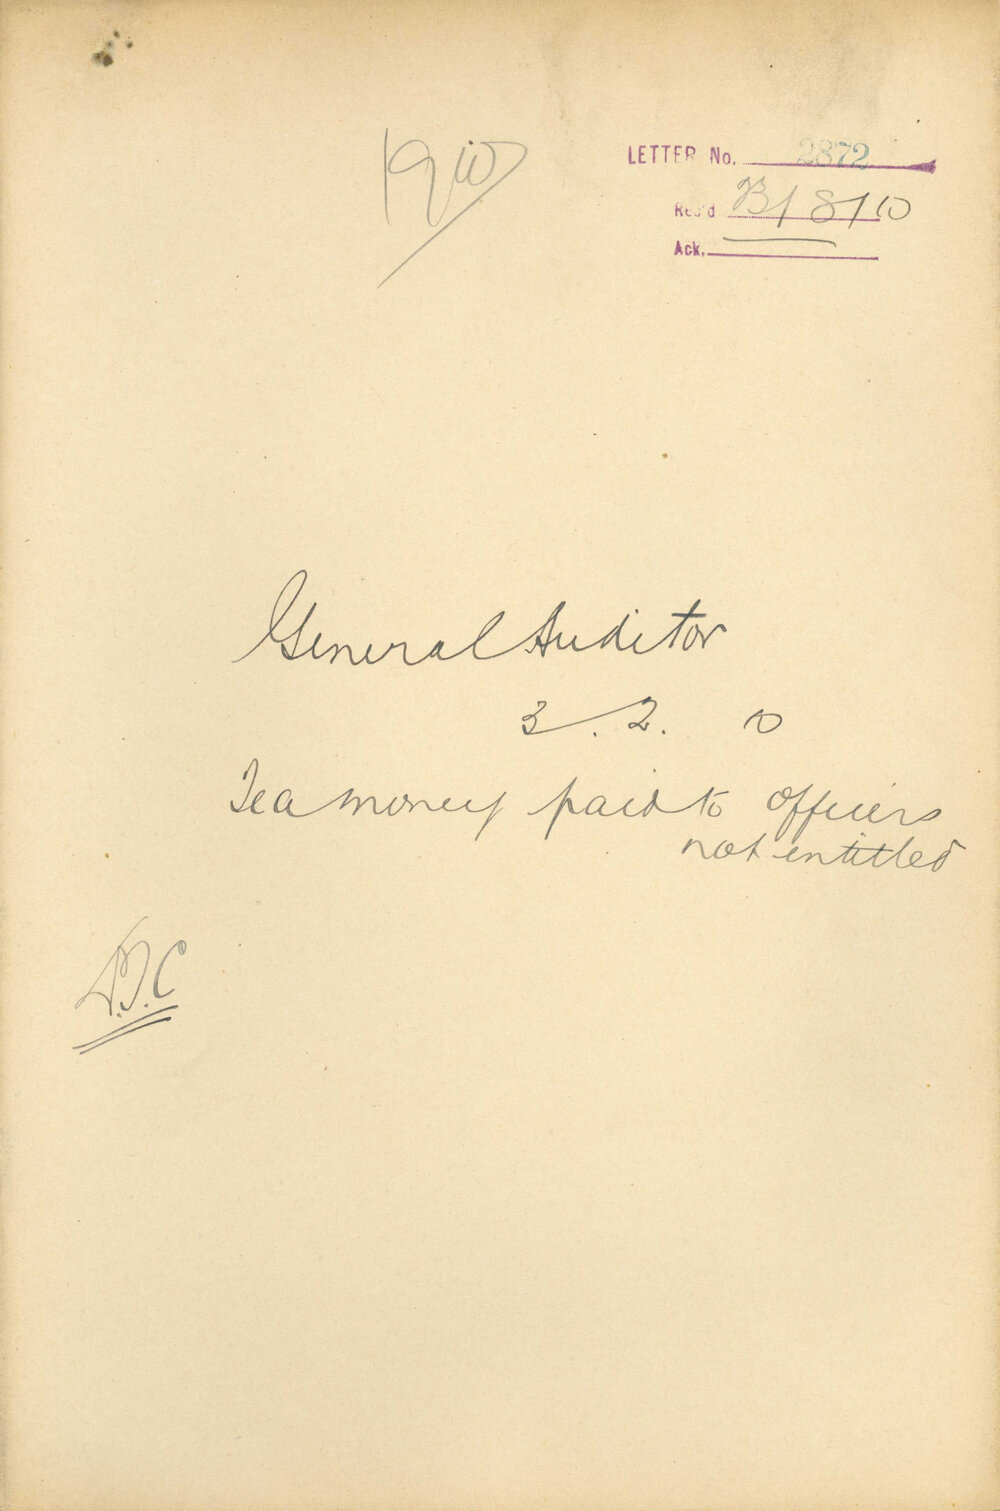 1910
LETTER No. 2872
Rec'd B/8/10
Ack.
General Auditor
3.2.10
Tea money paid to officers
not entitled